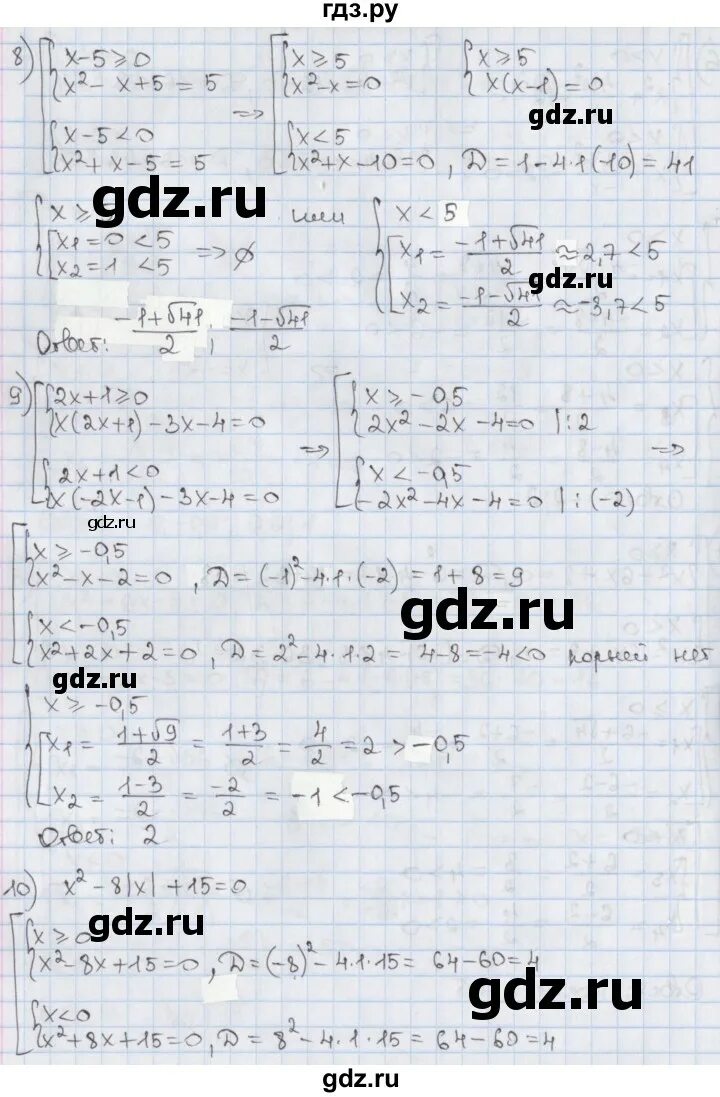 гдз.ру
8) x-5≥0
x²- x+5 = 5
x-5<0
x²+x-5=5
=>
x≥5
x²-x=0
x<5
x²+x-10=0, D=1-4·1(-10)=41
x≥5
x(x-1)=0
gdz.ru
gdz.ru
x≥
x₁=0<5
x₂=1 <5
=> ∅
или
x<5
x₁= (-1+√41)/2 ≈2,7<5
gdz.ru
x₂= (-1-√41)/2 ≈-3,7<5
Ответ: (-1+√41)/2; (-1-√41)/2
9) 2x+1≥0
x(2x+1)-3x-4=0
2x+1<0
x(-2x-1)-3x-4=0
gdz.ru
=>
x≥-0,5
2x²-2x-4=0 |:2
x<-0,5
-2x²-4x-4=0 |:(-2)
=>
x≥-0,5
x²-x-2=0, D=(-1)²-4·1·(-2)=1+8=9
gdz.ru
x<-0,5
x²+2x+2=0, D=2²-4·1·2= 4-8=-4<0 корней нет
gdz.ru
x≥-0,5
x₁= (1+√9)/2 = (1+3)/2 = 4/2 =2 >-0,5
x₂ = (1-3)/2 = -2/2 = -1<-0,5
Ответ: 2
10) x²-8|x|+15=0
gdz.ru
x≥0
x²-8x+15=0, D=(-8)²-4·1·15= 64-60=4
gdz.ru
x<0
x²+8x+15=0, D=8²-4·1·15=64-60=4
gdz.ru